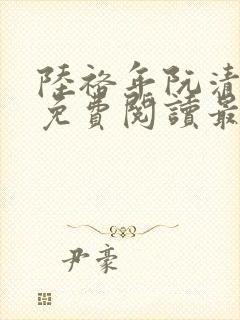 陸裕年阮清
免費閱讀最
尹豪